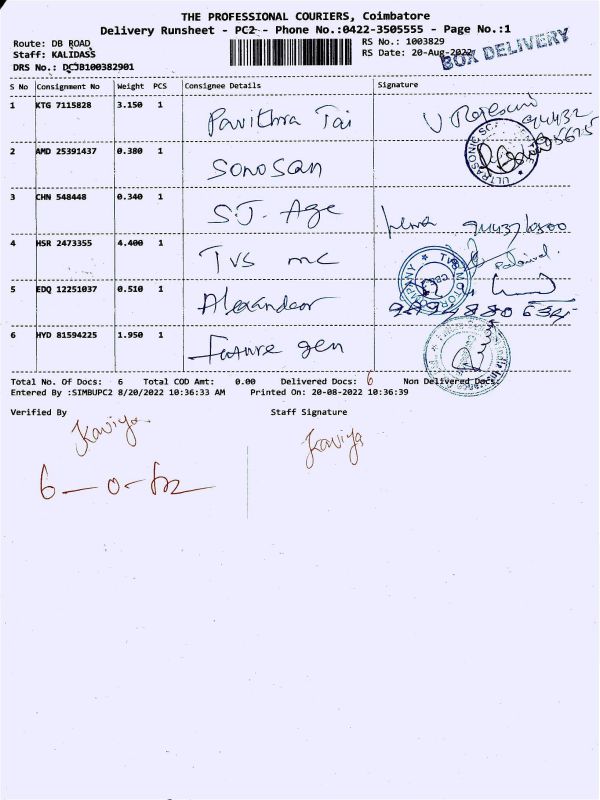 THE PROFESSIONAL COURIERS, Coimbatore
Delivery Runsheet - PC2 - Phone No.:0422-3505555 - Page No.:1
Route: DB ROAD RS No.: 1003829
Staff: KALIDASS RS Date: 20-Aug-2022
BOX DELIVERY
DRS No.: DCJB100382901
S No Consignment No Weight PCS Consignee Details Signature
1 KTG 7115828 3.150 1 Pavithra Tai
2 AMD 25391437 0.380 1 Sonoscan
3 CHN 548448 0.340 1 S.J. Age
4 HSR 2473355 4.400 1 TVS mc
5 EDQ 12251037 0.510 1 Alexandaor
6 HYD 81594225 1.950 1 Future gen
Total No. Of Docs: 6 Total COD Amt: 0.00 Delivered Docs: 6 Non Delivered Docs:
Entered By :SIMBUPC2 8/20/2022 10:36:33 AM Printed On: 20-08-2022 10:36:39
Verified By Staff Signature
Kaviya Kaviya